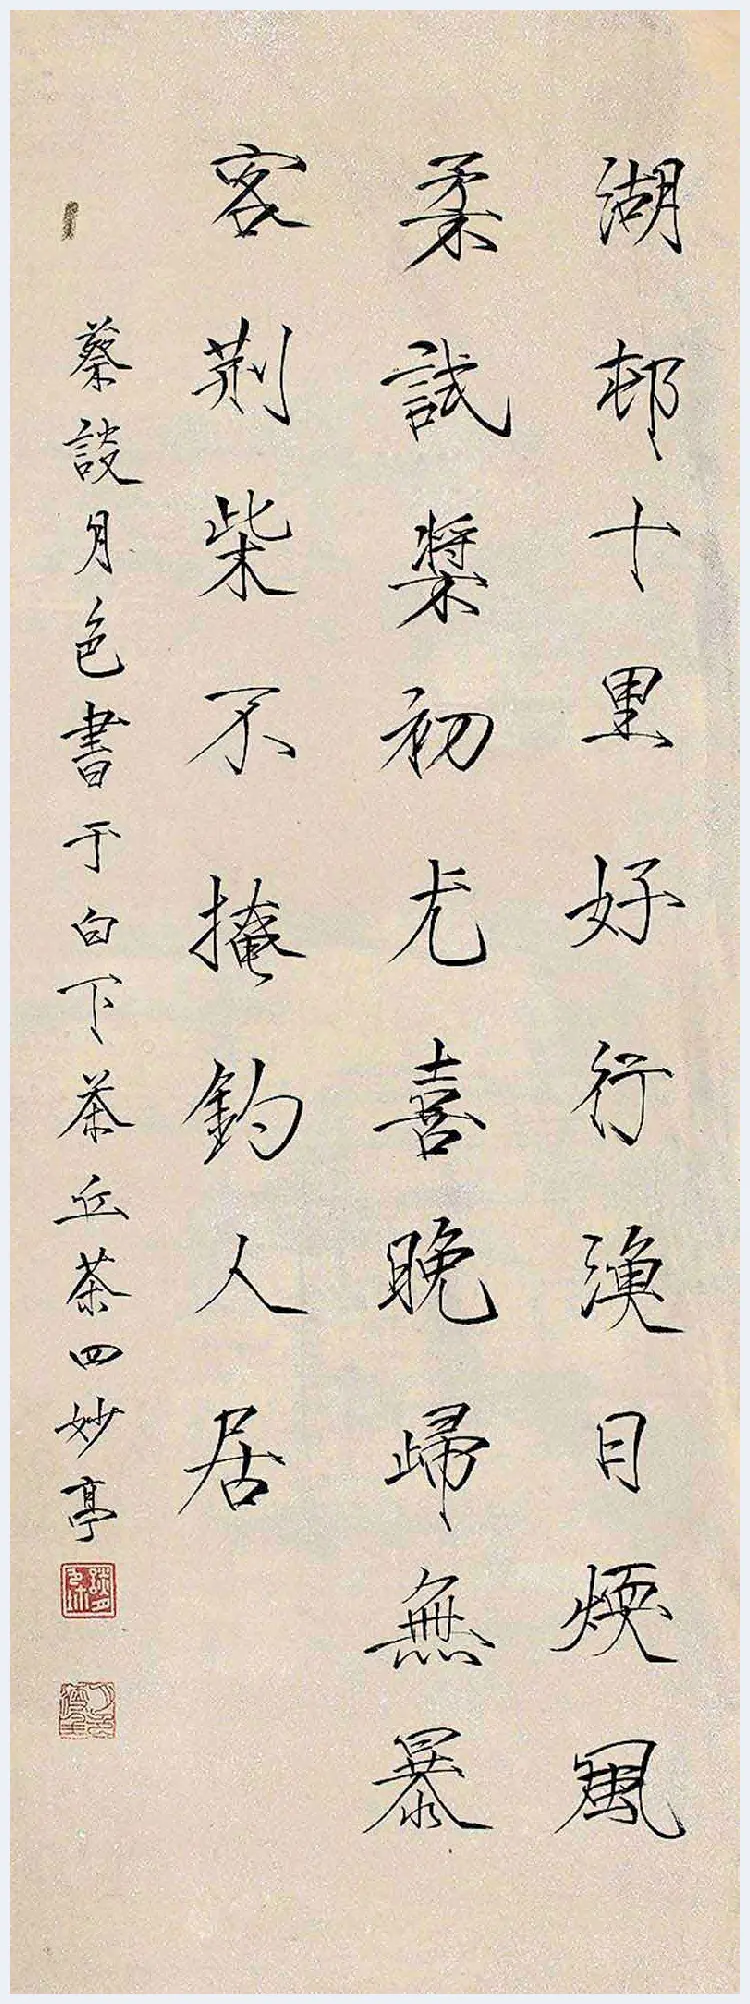 湖邨十里好行漁日煗風
柔試槳初尤喜晚歸無暴
客荆柴不掩釣人居
蔡談月色書于白下茶丘茶四妙亭